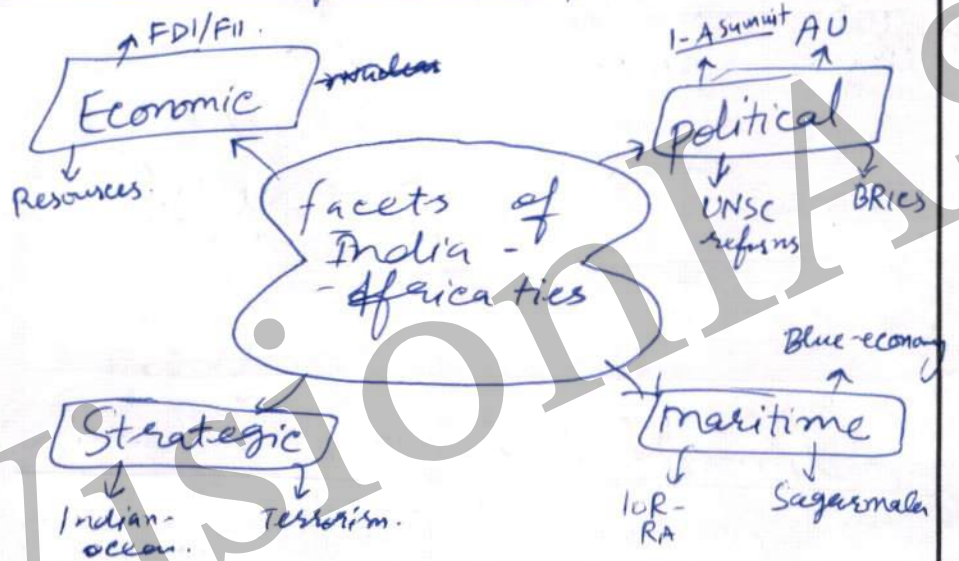 FDI/FII.
Economic
Resources.
I-A summit
AU
political
UNSC
refusns
BRICS
facets of
India -
- Africa ties
Strategic
Indian-
ocean.
Terrorism.
Blue-economy
maritime
IOR-
RA
Sagarmala
VisionIAS